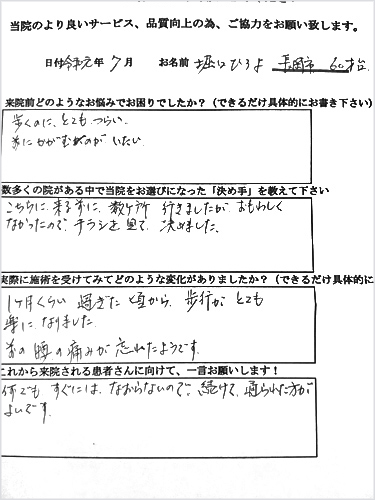 当院のより良いサービス、品質向上の為、ご協力をお願い致します。
日付令和元年7月 お名前 堀口ひろよ 長岡市 60才台
来院前どのようなお悩みでお困りでしたか？（できるだけ具体的にお書き下さい）
歩くのに、とても つらい。
前にかがむのが いたい。
数多くの院がある中で当院をお選びになった「決め手」を教えて下さい
こちらに 来る前に、数ヶ所 行きましたが、おもわしく
なかったので、チラシを 見て、決めました。
実際に施術を受けてみてどのような変化がありましたか？（できるだけ具体的に
1ヶ月くらい 過ぎた 頃から、歩行が とても
楽に なりました。
前の 腰の 痛みが 忘れたようです。
これから来院される患者さんに向けて、一言お願いします！
何でも すぐには、なおらないので、続けて、通られた方が
よいです。